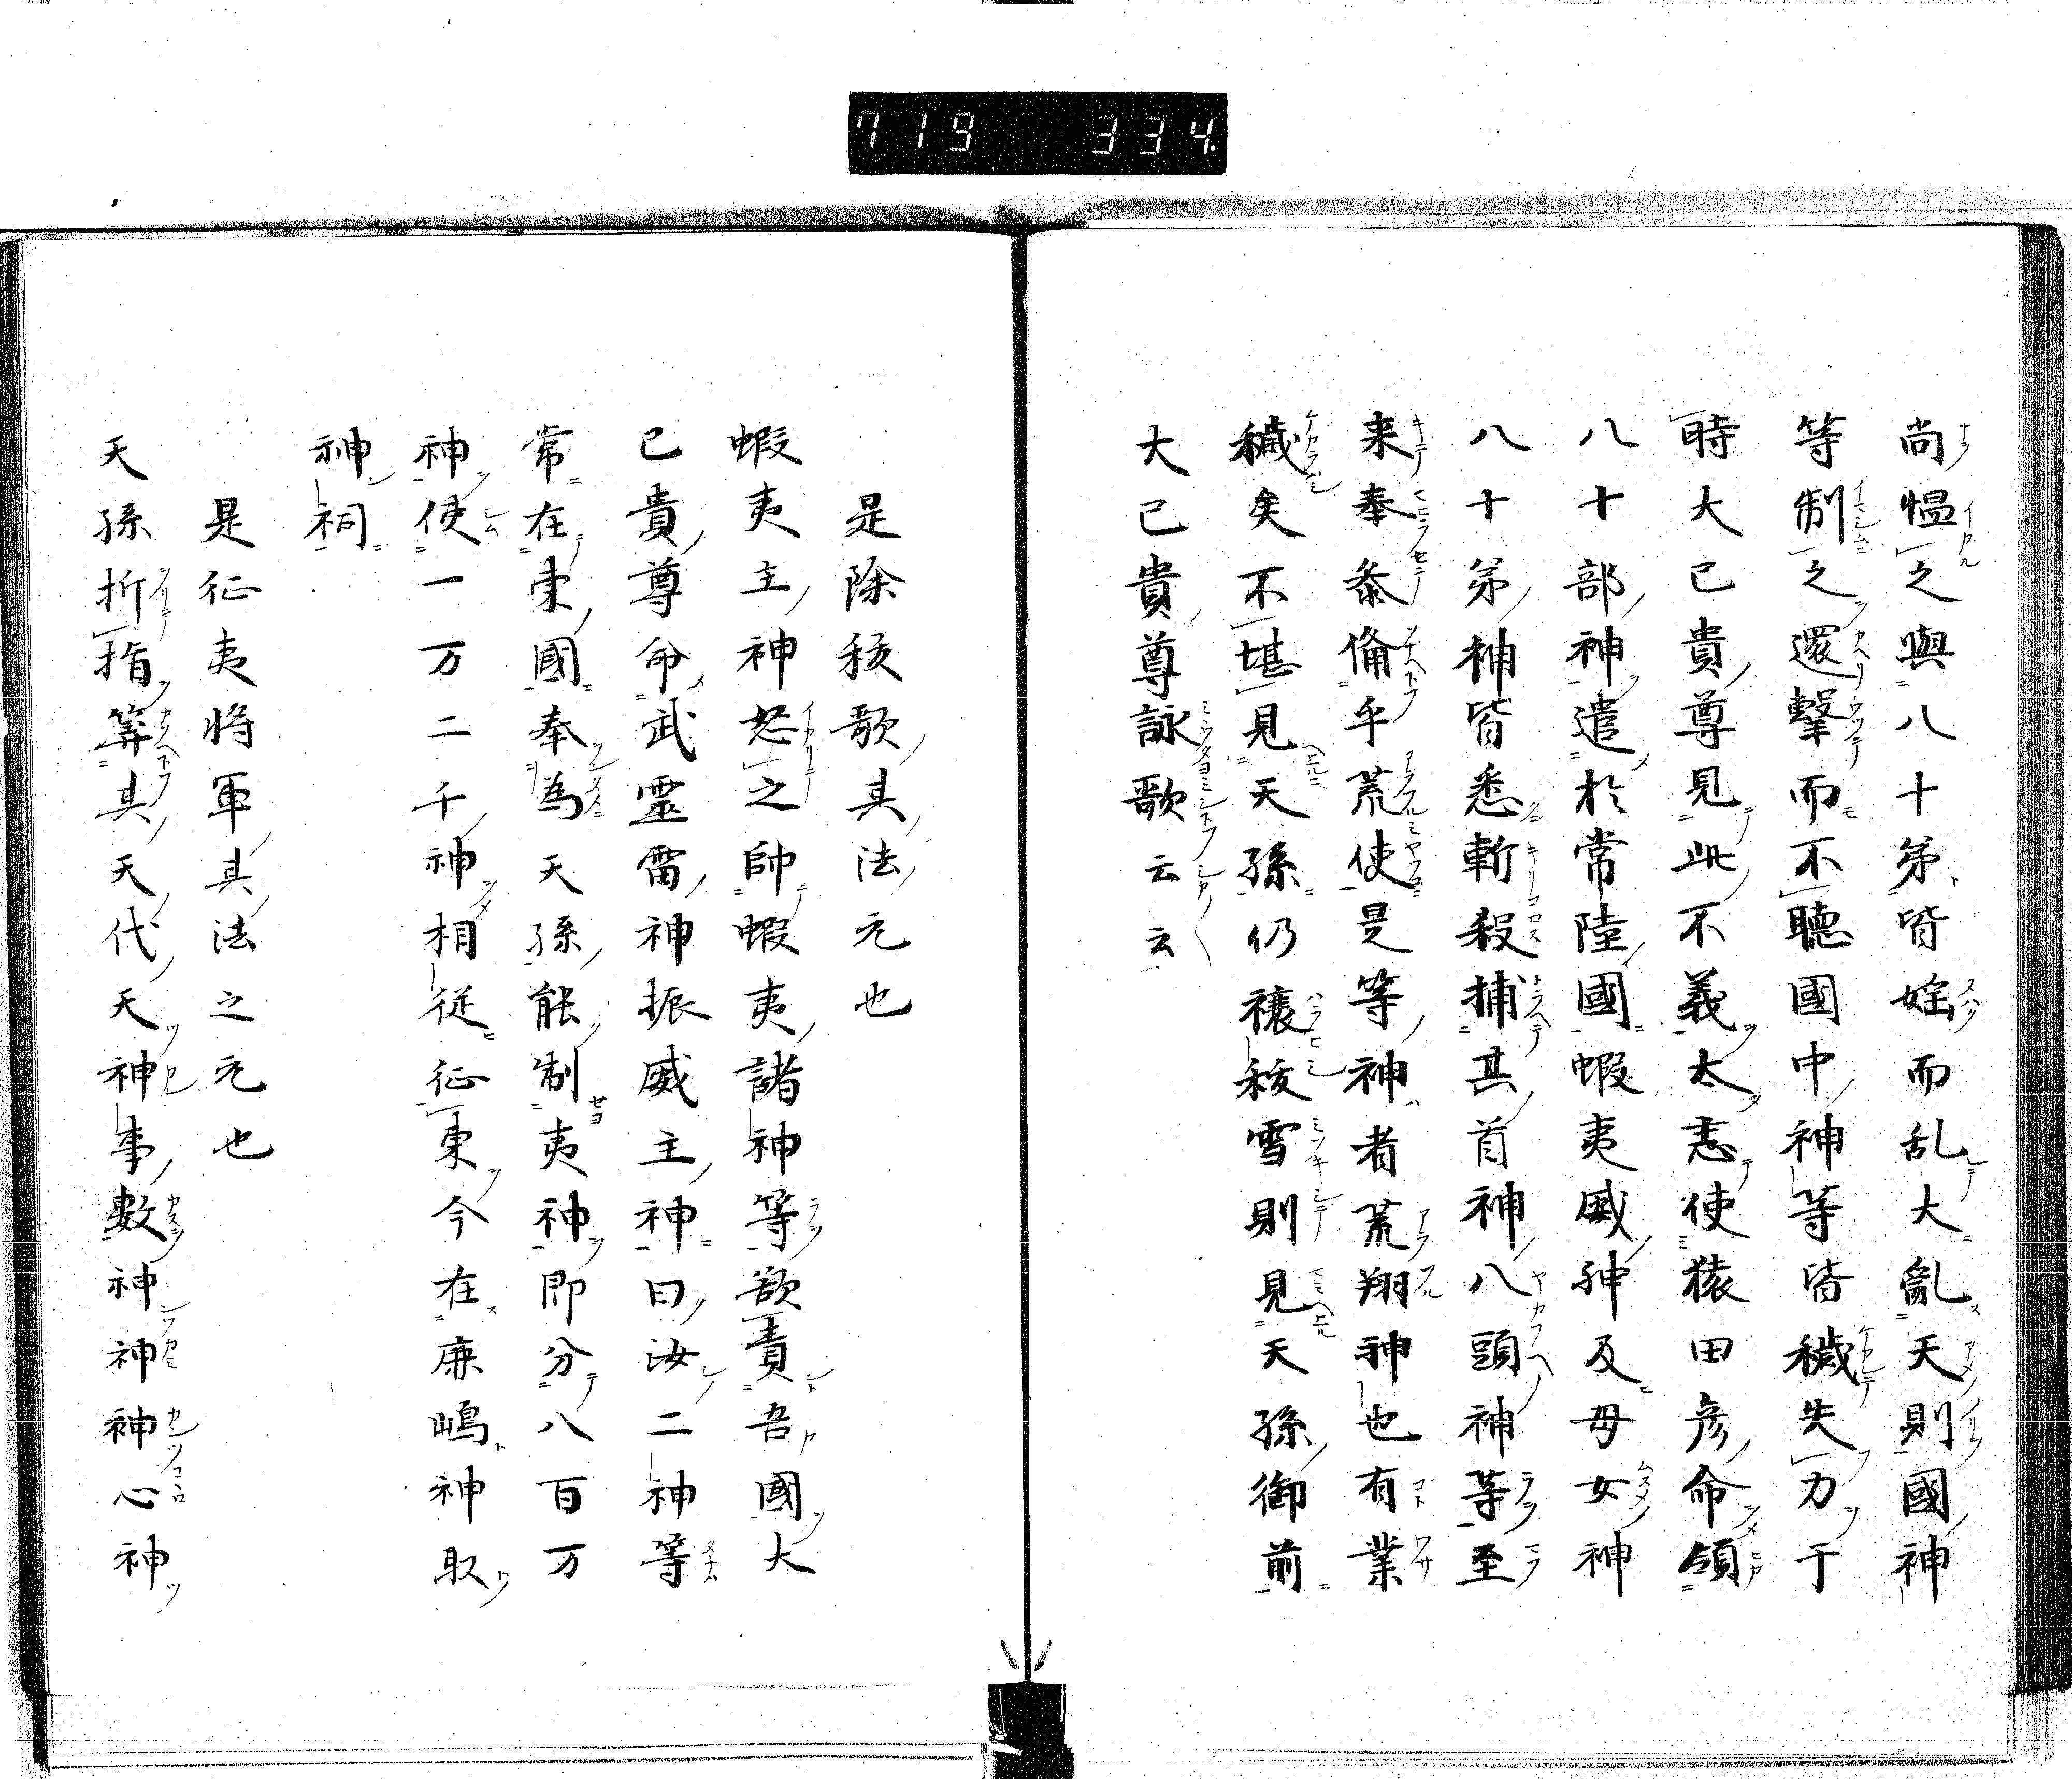 719 334
尚慍之與八十弟皆婬而乱大亂天則國神
等制之還撃而不聴國中神等皆穢失力于
時大己貴尊見此不義太恚使猿田彦命領
八十部神遣於常陸國蝦夷威神及母女神
八十弟神皆悉斬殺捕其首神八頭神等至
来奉黍倫乎荒使是等神者荒翔神也有業
穢矣不堪見天孫仍禳祓雪則見天孫御前
大己貴尊詠歌云云
是除祓歌其法元也
蝦夷主神怒之帥蝦夷諸神等欲責吾國大
己貴尊命武靈雷神振威主神曰汝二神等
常在東國奉為天孫能制夷神即分八百万
神使一万二千神相従征東今在鹿嶋神取
神祠
是征夷将軍其法之元也
天孫折指筭其天代天神事數神神神心神